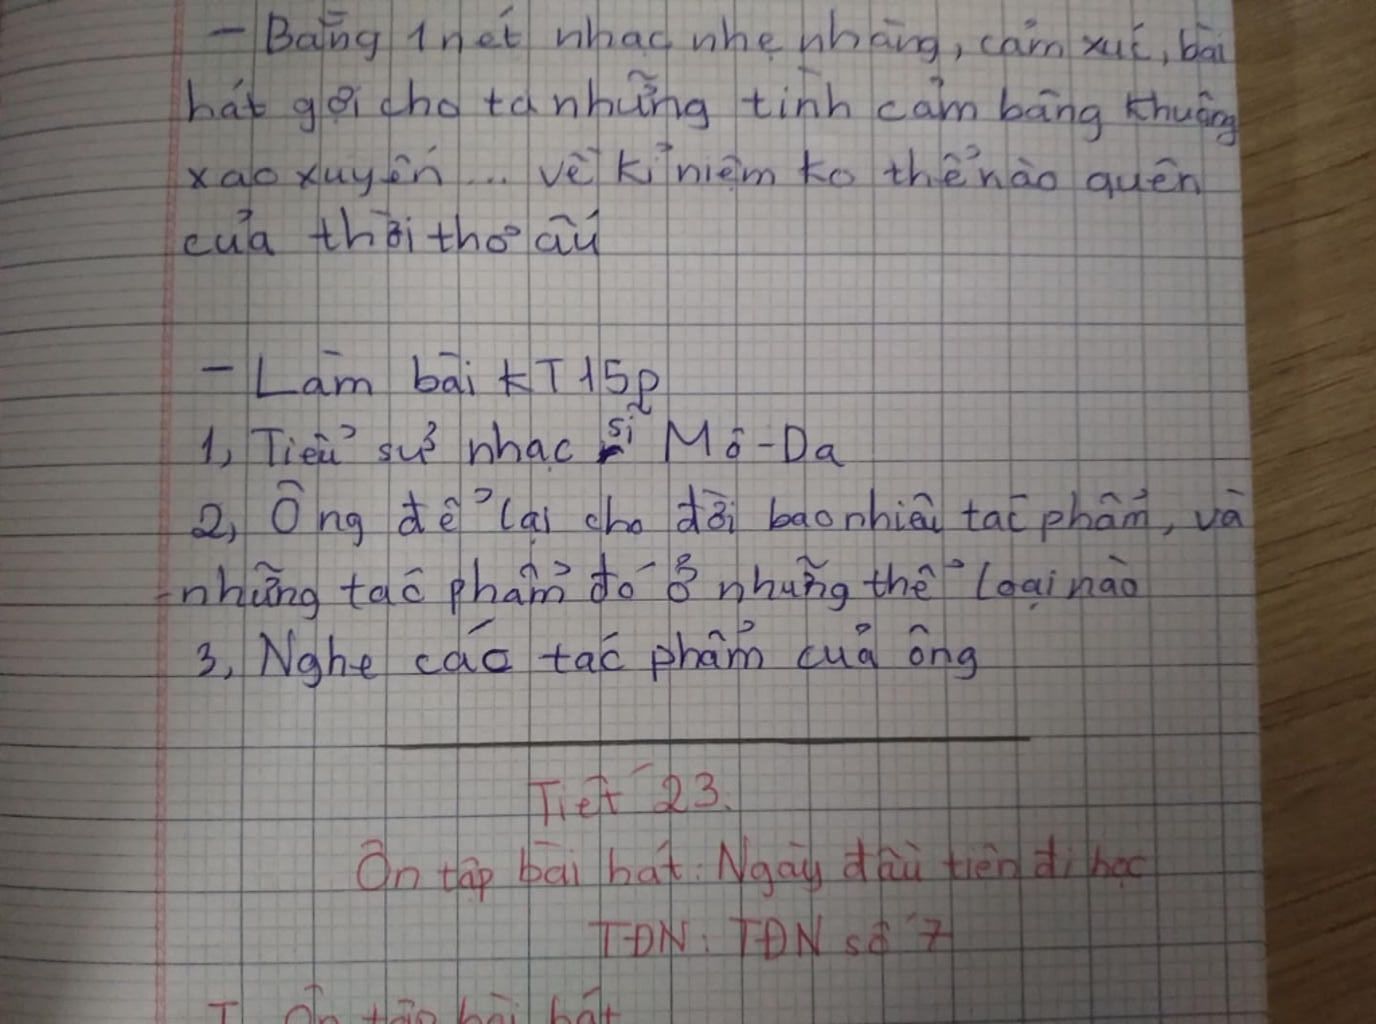 - Bằng 1 nét nhạc nhẹ nhàng, cảm xúc, bài
hát gợi cho ta những tình cảm bâng khuâng
xao xuyến ... về kỉ niệm ko thể nào quên
của thời thơ ấu
- Làm bài KT 15p
1, Tiểu sử nhạc sĩ Mô-Da
2, Ông để lại cho đời bao nhiêu tác phẩm, và
những tác phẩm đó ở những thể loại nào
3, Nghe các tác phẩm của ông
Tiết 23.
Ôn tập bài hát: Ngày đầu tiên đi học
TĐN: TĐN số 7
I. Ôn tập bài hát